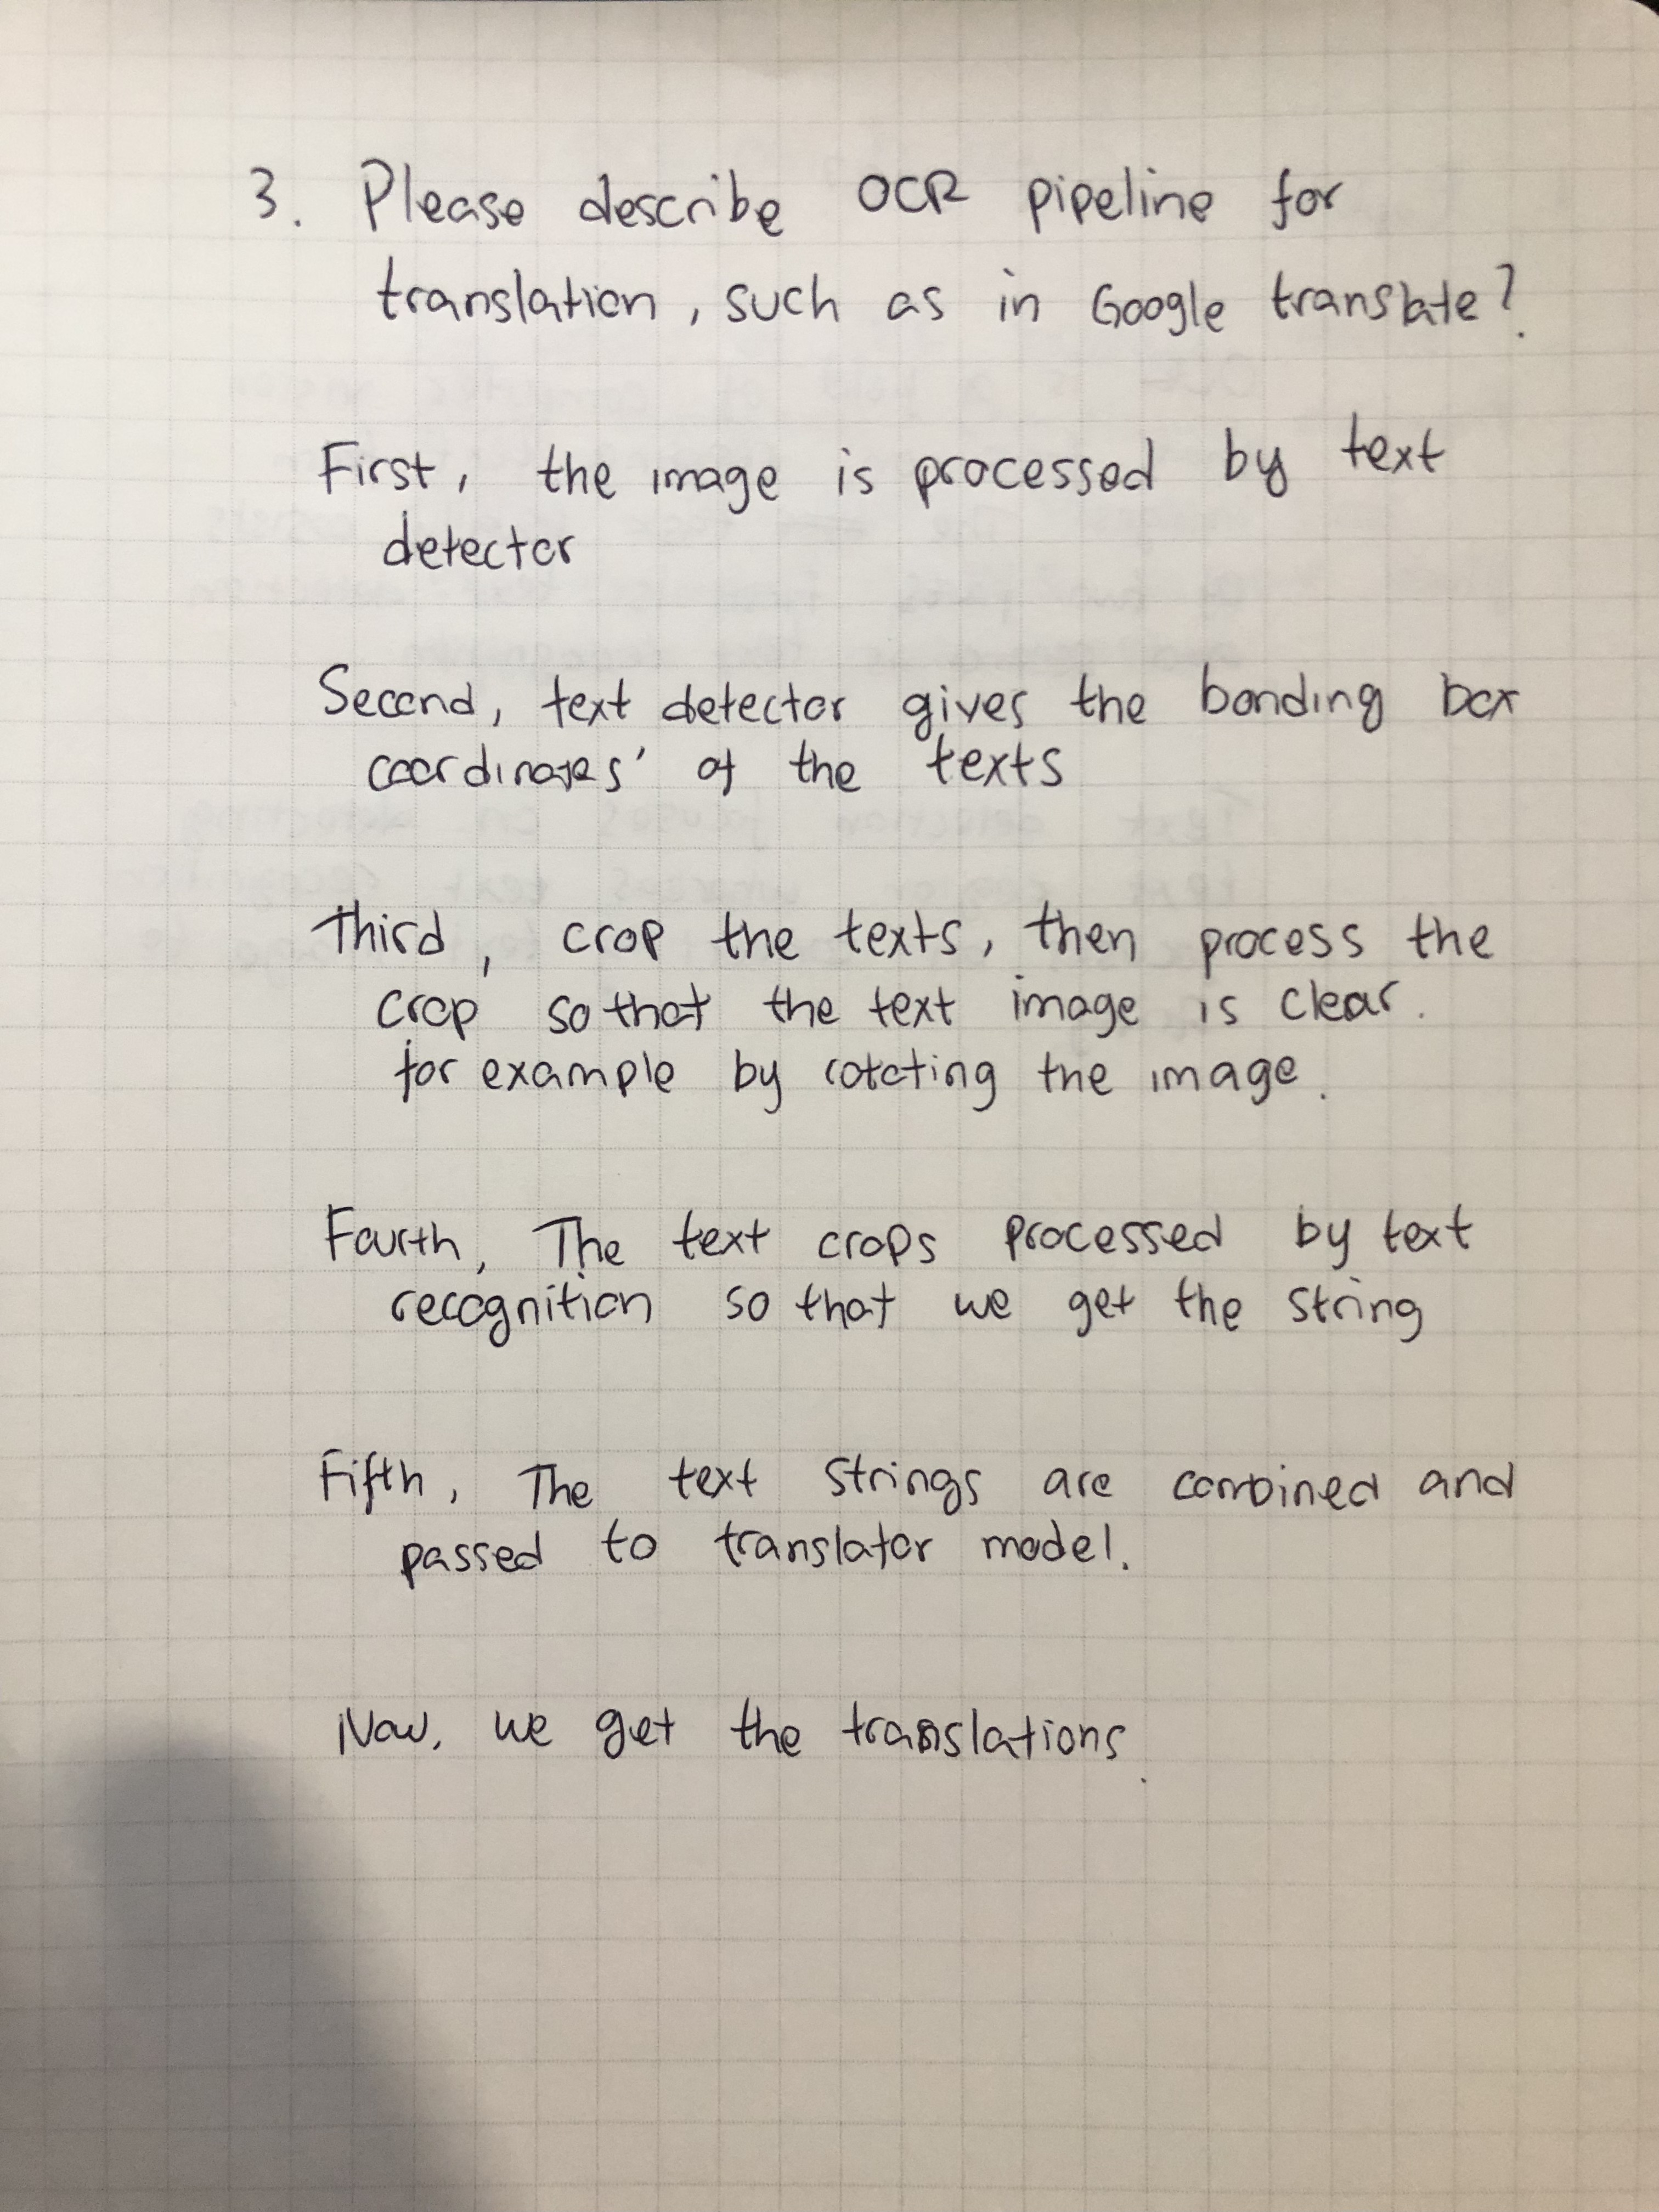 3. Please describe OCR pipeline for
translation, such as in Google translate?
First, the image is processed by text
detector
Second, text detector gives the bonding box
coordinates' of the texts
Third, crop the texts, then process the
crop so that the text image is clear.
for example by rotating the image.
Fourth, The text crops processed by text
recognition so that we get the string
Fifth, The text strings are combined and
passed to translator model.
Now, we get the translations.